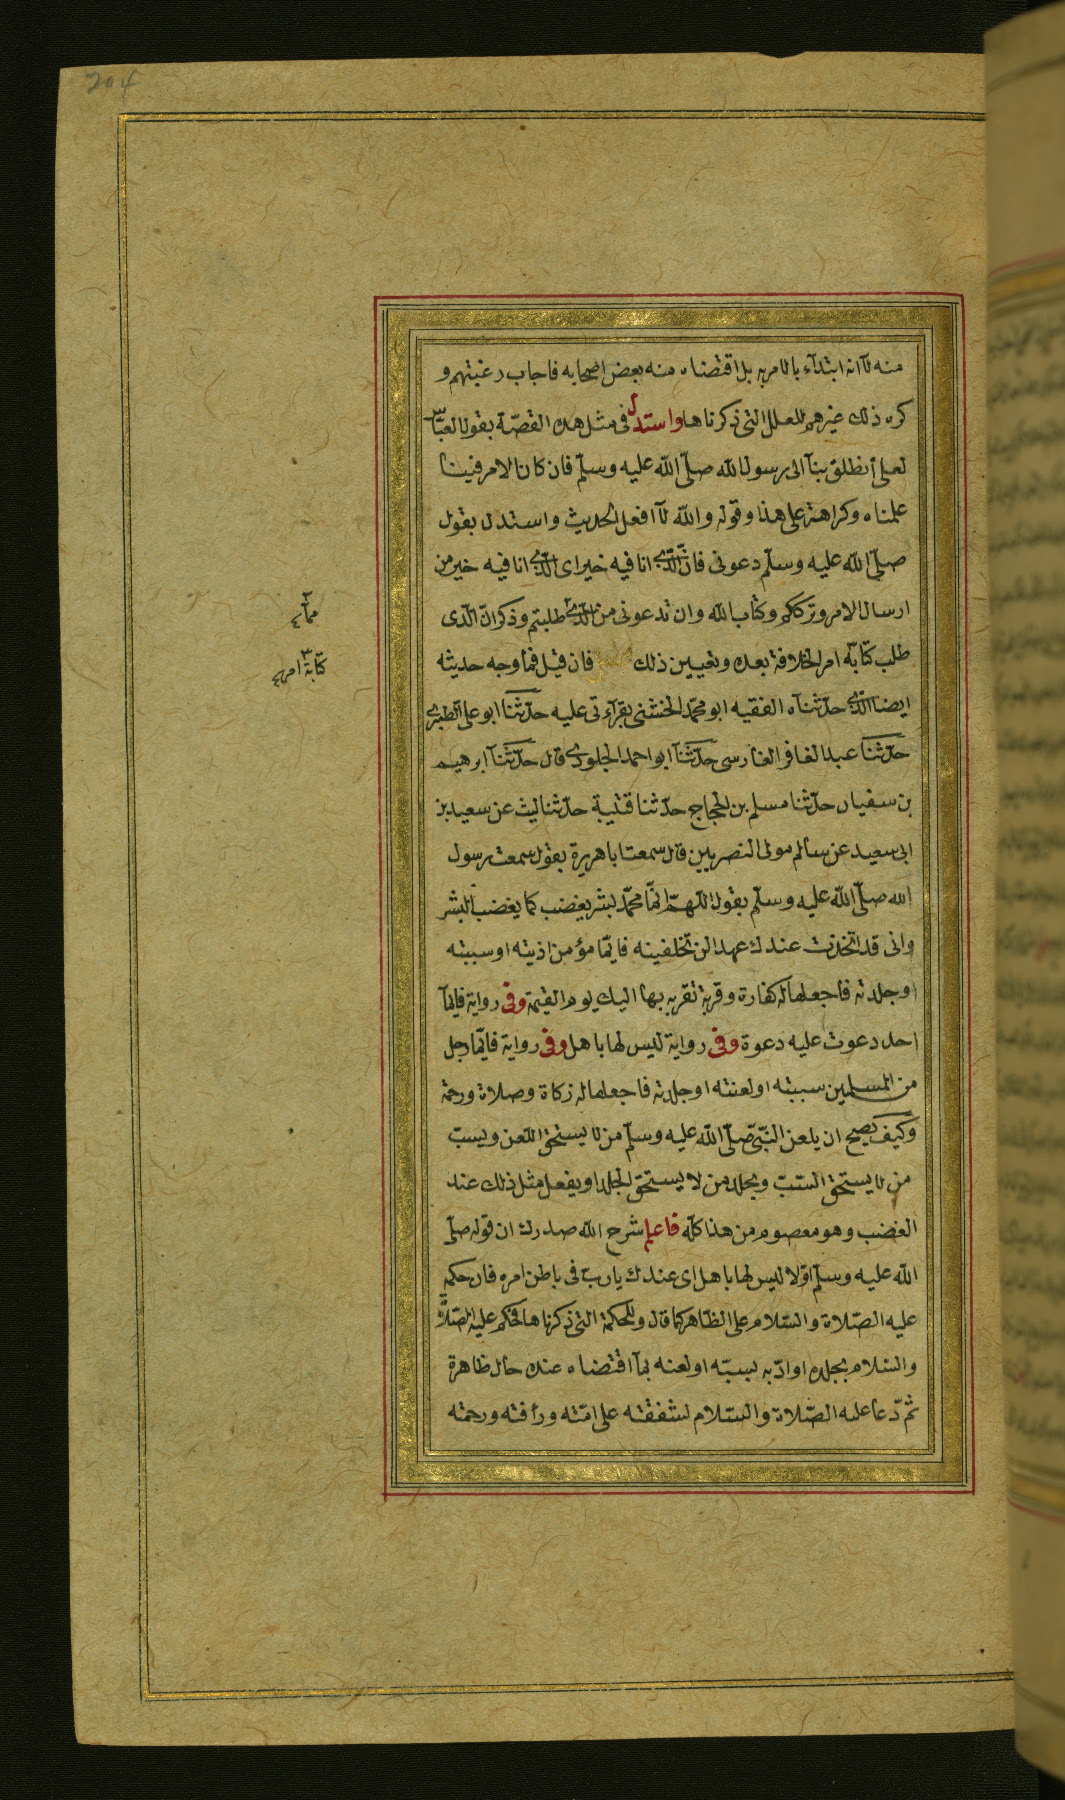 204
منه لآ انه ابتدآء بالامر به بل اقتضاه منه بعض اصحابه فاجاب رغبتهم و
كره ذلك غيرهم للعلل التى ذكرناها واستدل فى مثل هذه القصّة بقول العبّاس
لعلى أنطلق بنآ الى رسول الله صلّى الله عليه وسلّم فان كان الامر فينا
علمناه وكراهة على هذا وقوله والله لآ افعل الحديث واستدل بقول
صلّى الله عليه وسلّم دعونى فانّ الّذى انا فيه خير اى الّذى انا فيه خير من
ارسال الامر وترككم وكتاب الله وان تدعونى من الّذى طلبتم وذكر انّ الّذى
طلب كتابة امر الخلافة بعده وتعيين ذلك فان قيل فما وجه حديثه
ايضا الّذى حدّثناه الفقيه ابو محمّد الخشنى بقرآءتى عليه حدّثنا ابو على الطبرى
حدّثنا عبد الغافر الفارسى حدّثنا ابو احمد الجلودى قال حدّثنا ابرهيم
بن سفيان حدّثنا مسلم بن الحجاج حدّثنا قتيبة حدّثنا ليث عن سعيد بن
ابى سعيد عن سالم مولى النصريين قال سمعت ابا هريرة يقول سمعت رسول
الله صلّى الله عليه وسلّم يقول اللّهمّ انّما محمّد بشر يغضب كما يغضب البشر
وانى قد اتخذت عندك عهدا لن تخلفينه فايّما مؤمن اذيته او سببته
او جلدته فاجعلها له كفارة وقربة تقربه بها اليك يوم القيمة وفى رواية فايّمآ
احد دعوت عليه دعوة وفى رواية ليس لها باهل وفى رواية فايّما رجل
من المسلمين سببته او لعنته او جلدته فاجعلها له زكاة وصلاة ورحمة
وكيف يصح ان يلعن النّبىّ صلّى الله عليه وسلّم من لا يستحق اللّعن ويسبّ
من لا يستحق السّبّ ويجلد من لا يستحق الجلد او يفعل مثل ذلك عند
الغضب وهو معصوم من هذا كلّه فاعلم شرح الله صدرك ان قوله صلّى
الله عليه وسلّم اوّلا ليس لها باهل اى عندك يا ربّ فى باطن امره فان حكمه
عليه الصّلاة والسّلام على الظّاهر كما قال وللحكمة التى ذكرناها فحكم عليه الصّلاة
والسّلام بجلده او ادّبه بسبّه او لعنه بمآ اقتضاه عنده حال ظاهرة
ثم دّعا عليه الصّلاة والسّلام لشفقته على امّته ورأفته ورحمته
ممآ
كتابة امر